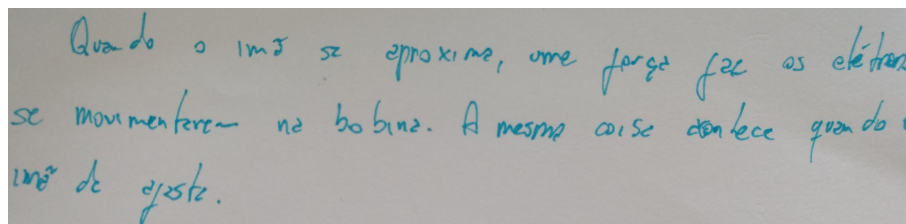 Quando o imã se aproxima, uma força faz os elétrons
se movimentarem na bobina. A mesma coisa acontece quando o
imã de afasta.